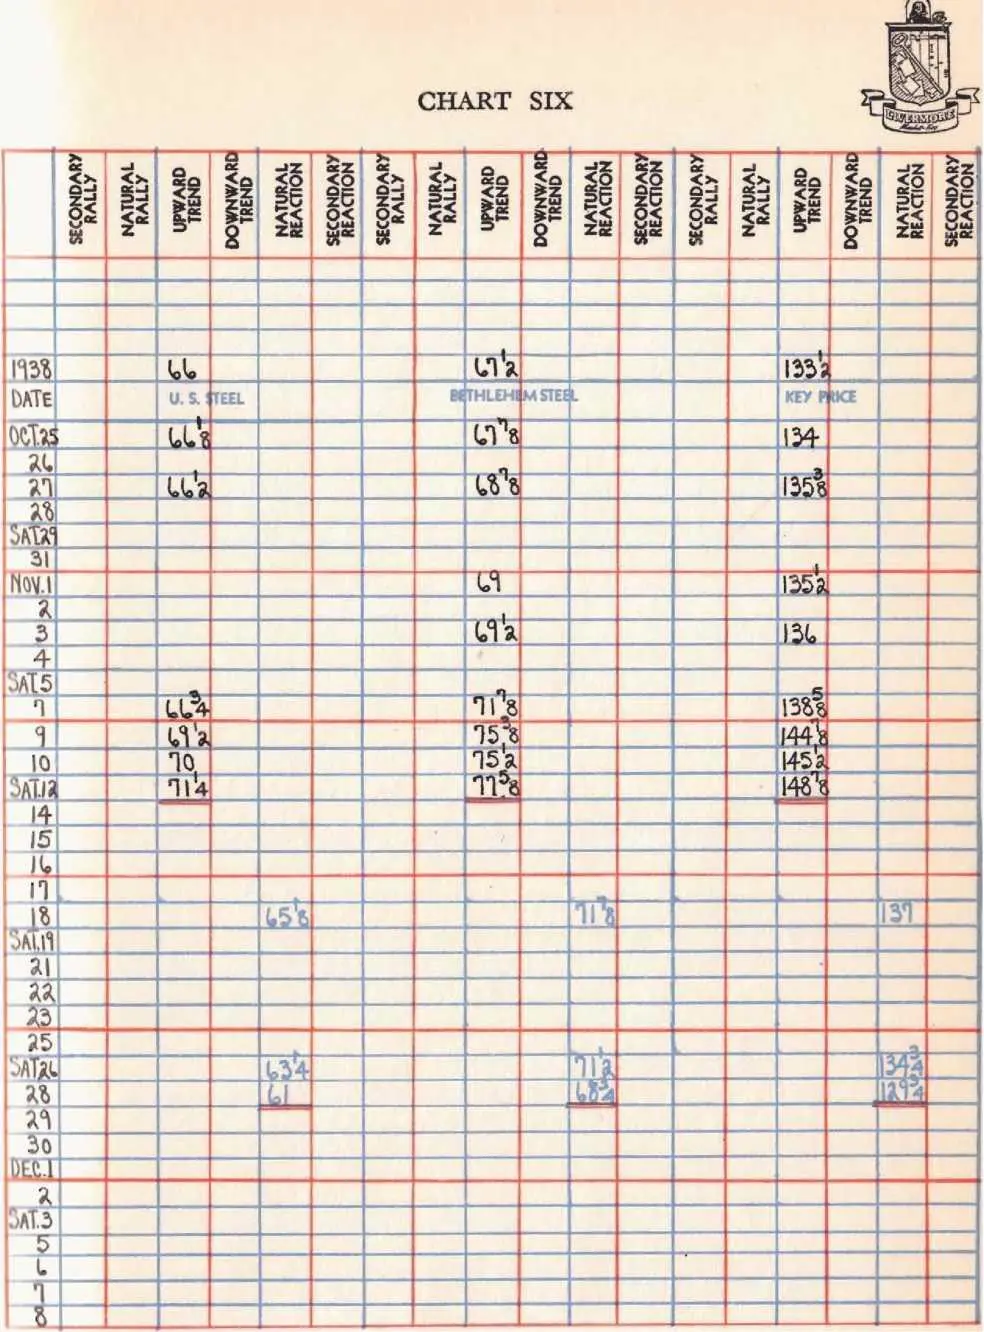 LIVERMORE
Market Key
CHART SIX
SECONDARY RALLY NATURAL RALLY UPWARD TREND DOWNWARD TREND NATURAL REACTION SECONDARY REACTION SECONDARY RALLY NATURAL RALLY UPWARD TREND DOWNWARD TREND NATURAL REACTION SECONDARY REACTION SECONDARY RALLY NATURAL RALLY UPWARD TREND DOWNWARD TREND NATURAL REACTION SECONDARY REACTION
1938 66 67 1/2 133 1/2
DATE U. S. STEEL BETHLEHEM STEEL KEY PRICE
OCT.25 66 1/8 67 7/8 134
26
27 66 1/2 68 7/8 135 3/8
28
SAT.29
31
NOV.1 69 135 1/2
2
3 69 1/2 136
4
SAT.5
7 66 3/4 71 7/8 138 5/8
9 69 1/2 75 3/8 144 7/8
10 70 75 1/2 145 1/2
SAT.12 71 1/4 77 5/8 148 7/8
14
15
16
17
18 65 1/8 71 7/8 137
SAT.19
21
22
23
25
SAT.26 63 1/4 71 1/2 134 3/4
28 61 68 3/4 129 3/4
29
30
DEC.1
2
SAT.3
5
6
7
8